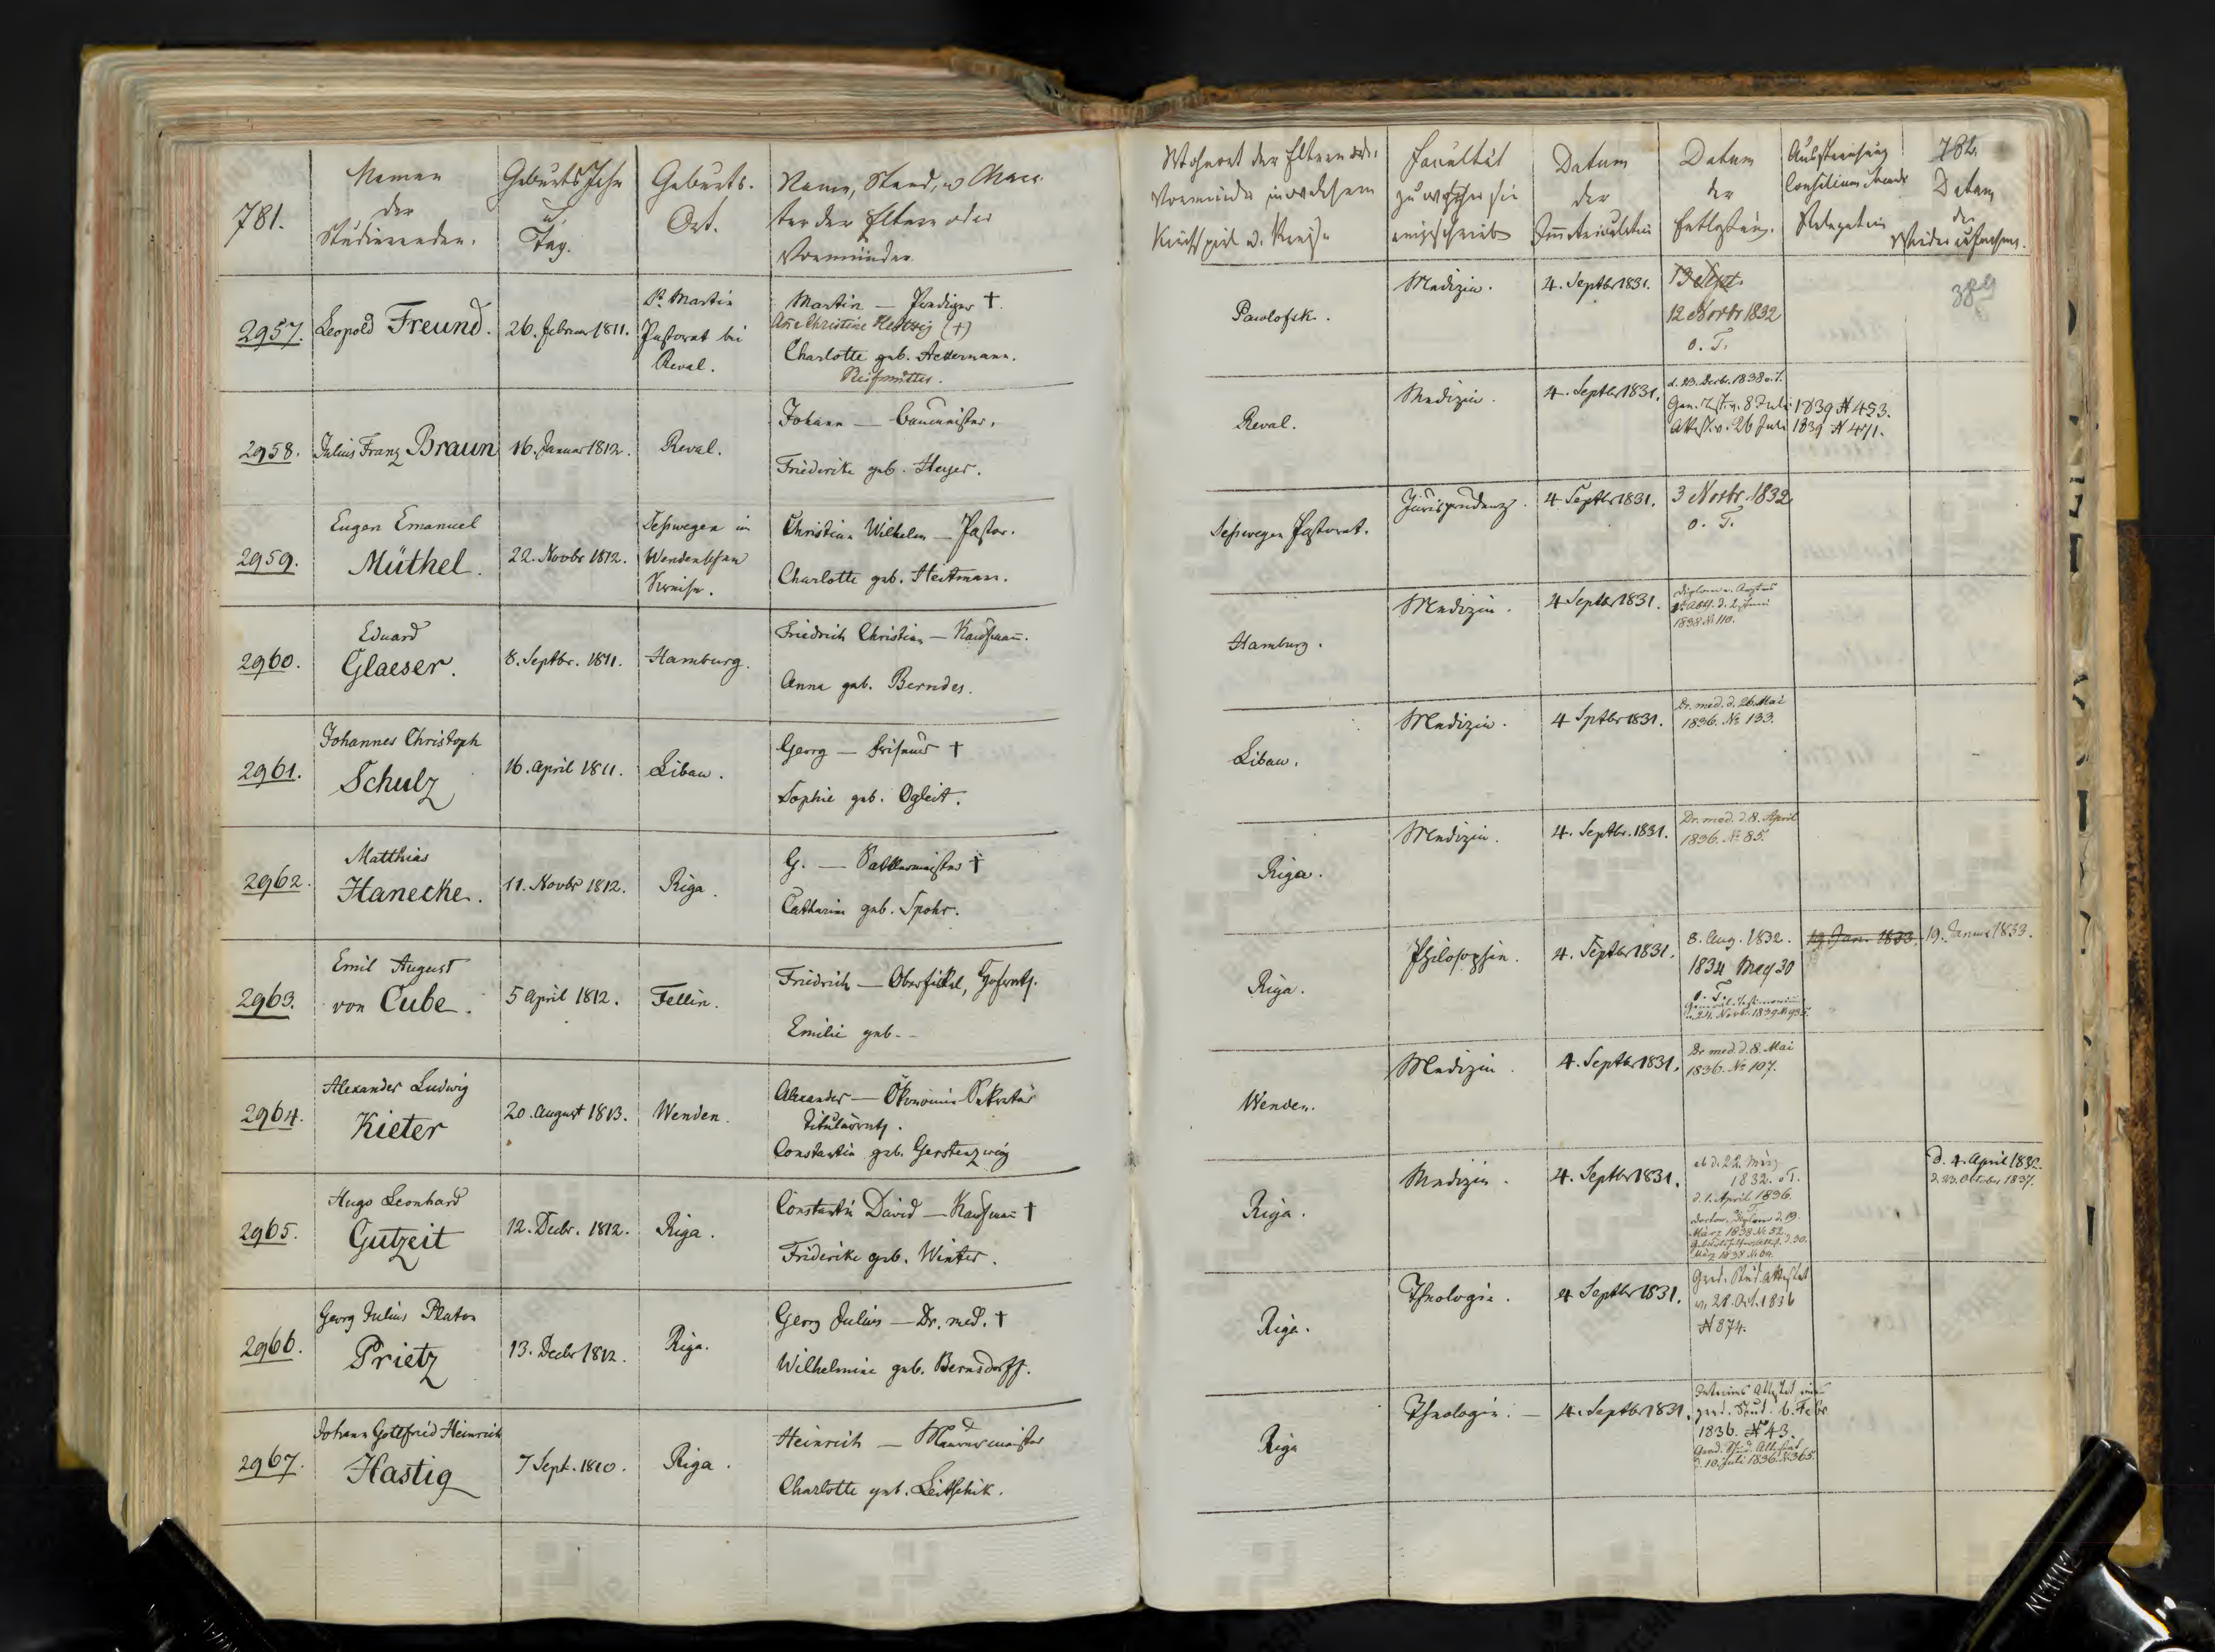 781.
Namen
der
Studierenden.
Geburts Jahr
u.
Tag.
Geburts-
Ort.
Name, Stand, u Charac-
ter der Eltern oder
Vormünder
Wohnort der Eltern oder
Vormünder in welchem
Kirchspiel u. Kreise
Facultät
zu welcher sie
eingeschrieben
Datum
der
Immatriculation
Datum
der
Entlassung.
Ausstreichung
Consilium abeundi
Relegation
782.
Datum
der
Wiederaufnahme.
2957.
Leopold Freund.
26. Februar 1811.
St. Martin
Pastorat bei
Reval.
Martin — Prediger †.
Charlotte geb. Ackermann.
Stiefmutter.
Pawlofsk.
Medizin.
4. Septbr 1831.
13 Sept.
12 Novbr 1832
o. T.
389
2958.
Julius Franz Braun
16. Januar 1812.
Reval.
Johann — Baumeister.
Friederike geb. Heyer.
Reval.
Medizin.
4. Septbr 1831.
d. 23. Decbr. 1838 o. T.
Gen. Test. v. 8 Juli 1839 N 453.
Attest. v. 26 Juli 1839 N 471.
2959.
Eugen Emanuel
Müthel.
22. Novbr 1812.
Seßwegen im
Wendenschen
Kreise.
Christian Wilhelm — Pastor.
Charlotte geb. Heitmann.
Seßwegen Pastorat.
Jurisprudenz.
4 Septbr 1831.
3 Novbr. 1832
o. T.
2960.
Eduard
Glaeser.
8. Septbr. 1811.
Hamburg.
Friedrich Christian — Kaufmann.
Anna geb. Berndes.
Hamburg.
Medizin.
4 Septbr 1831.
1838 N 110.
2961.
Johannes Christoph
Schulz
16. April 1811.
Libau.
Georg — †
Sophie geb. Ogleit.
Libau.
Medizin.
4 Sptbr 1831.
Dr. med. d. 26. Mai
1836. No 133.
2962.
Matthias
Hanecke.
11. Novbr 1812.
Riga.
G. — †
Catharine geb. Spohr.
Riga.
Medizin.
4. Septbr. 1831.
Dr. med. d. 8. April
1836. No 85.
2963.
Emil August
von Cube.
5 April 1812.
Fellin.
Friedrich — Oberfiskal, Hofrath.
Emilie geb.-
Riga.
Philosophie.
4. Septbr 1831.
8. Aug. 1832.
1834 May 30
o. T.
19 Jan. 1833.
19. Januar 1833.
2964.
Alexander Ludwig
Kieter
20. August 1813.
Wenden.
Alexander — Ökonomie Sekretär
Titulärrath.
Constantia geb. Gerstenzweig
Wenden.
Medizin.
4. Septbr 1831.
Dr med. d. 8. Mai
1836. No 107.
2965.
Hugo Leonhard
Gutzeit
12. Decbr. 1812.
Riga.
Constantin David — Kaufmann †
Friderike geb. Winter.
Riga.
Medizin.
4. Septbr 1831.
ab d. 22. März
1832. o. T.
d. 1. April 1836.
März 1838 No 52.
d. 4. April 1832.
d. 23. October 1837.
2966.
Georg Julius Platon
Prietz
13. Decbr 1812.
Riga.
Georg Julius — Dr. med. †
Wilhelmine geb. Bernsdorff.
Riga.
Theologie.
4 Septbr 1831.
Grad. Stud. Attestat
v. 28. Oct. 1836
N 874.
2967.
Johann Gottfried Heinrich
Hastig
7 Sept. 1810.
Riga.
Heinrich — Maurermeister
Charlotte geb. Leitschik.
Riga
Theologie. —
4. Septbr 1831.
grad. Stud. 6. Febr
1836. N 43.
Grad. Stud. Attestat
d. 10. Juli 1836. N 365.